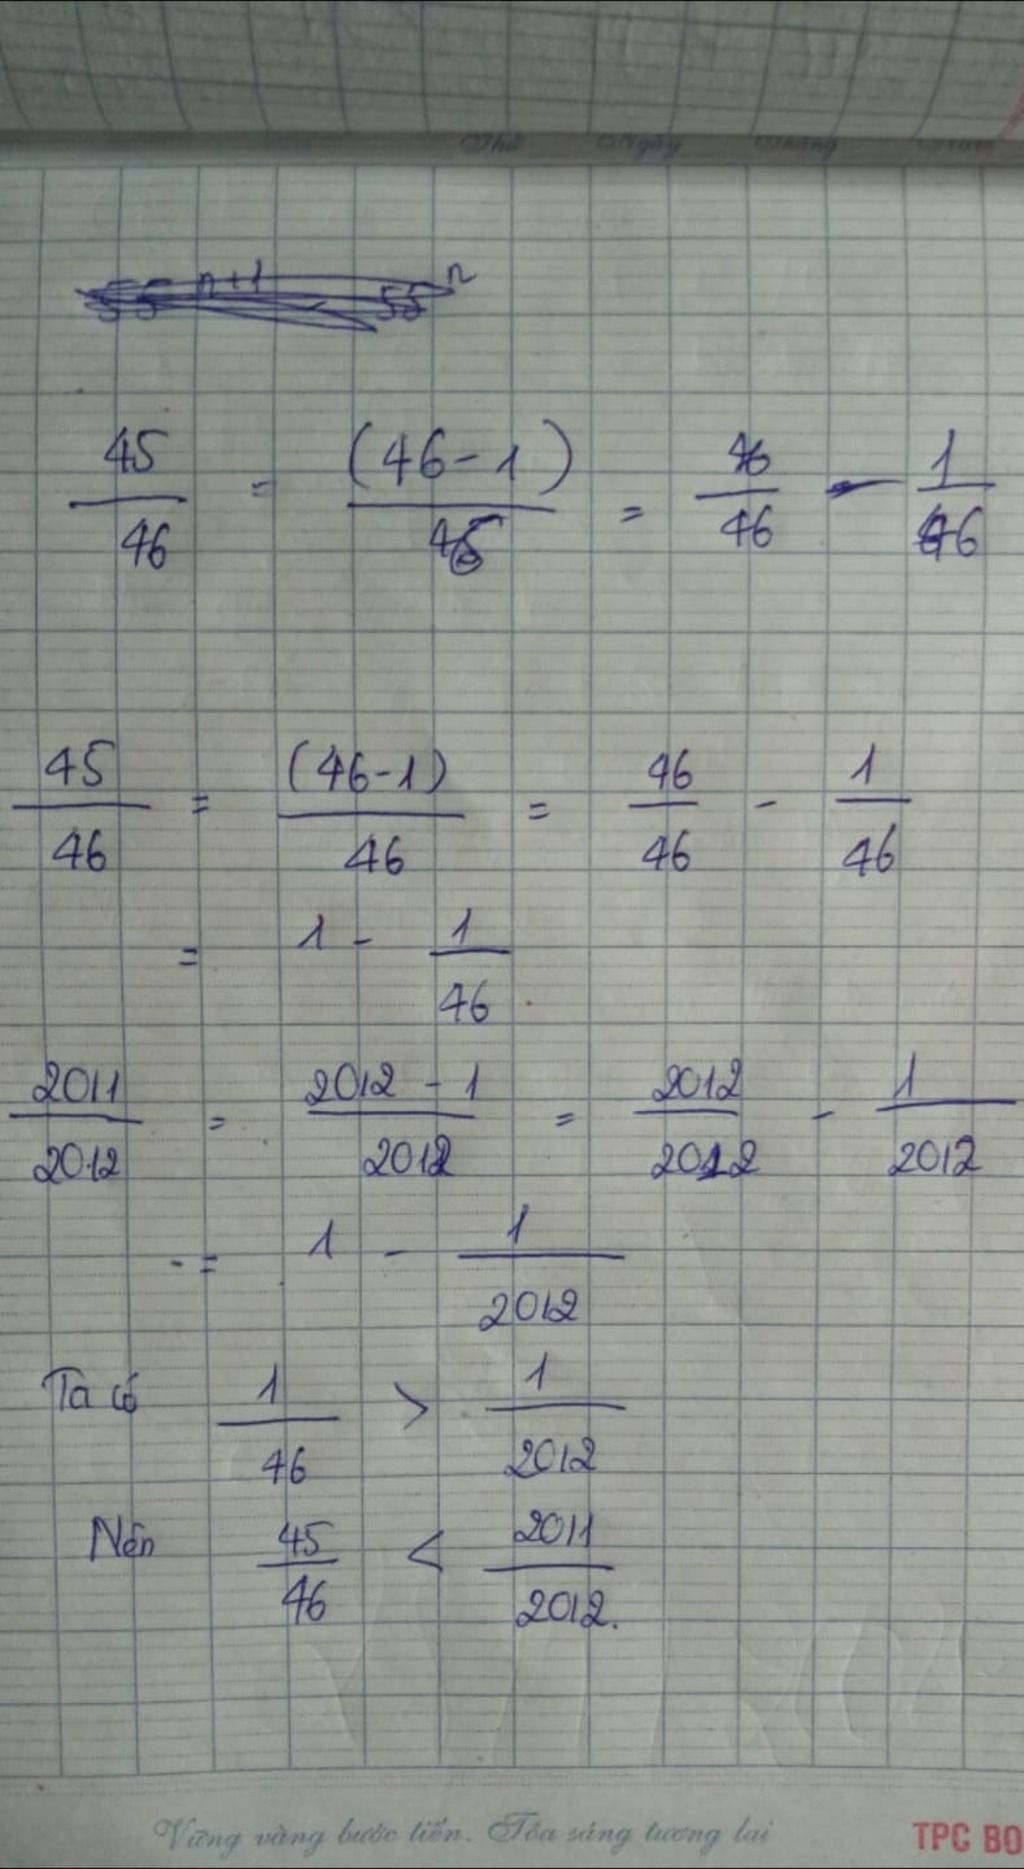 Thứ Ngày Tháng Năm
55 n+1 55 n
45/46 = (46-1)/46 = 46/46 - 1/46
45/46 = (46-1)/46 = 46/46 - 1/46
= 1 - 1/46
2011/2012 = 2012 - 1/2012 = 2012/2012 - 1/2012
= 1 - 1/2012
Ta có 1/46 > 1/2012
Nên 45/46 < 2011/2012.
Vững vàng bước tiến. Tỏa sáng tương lai TPC BO